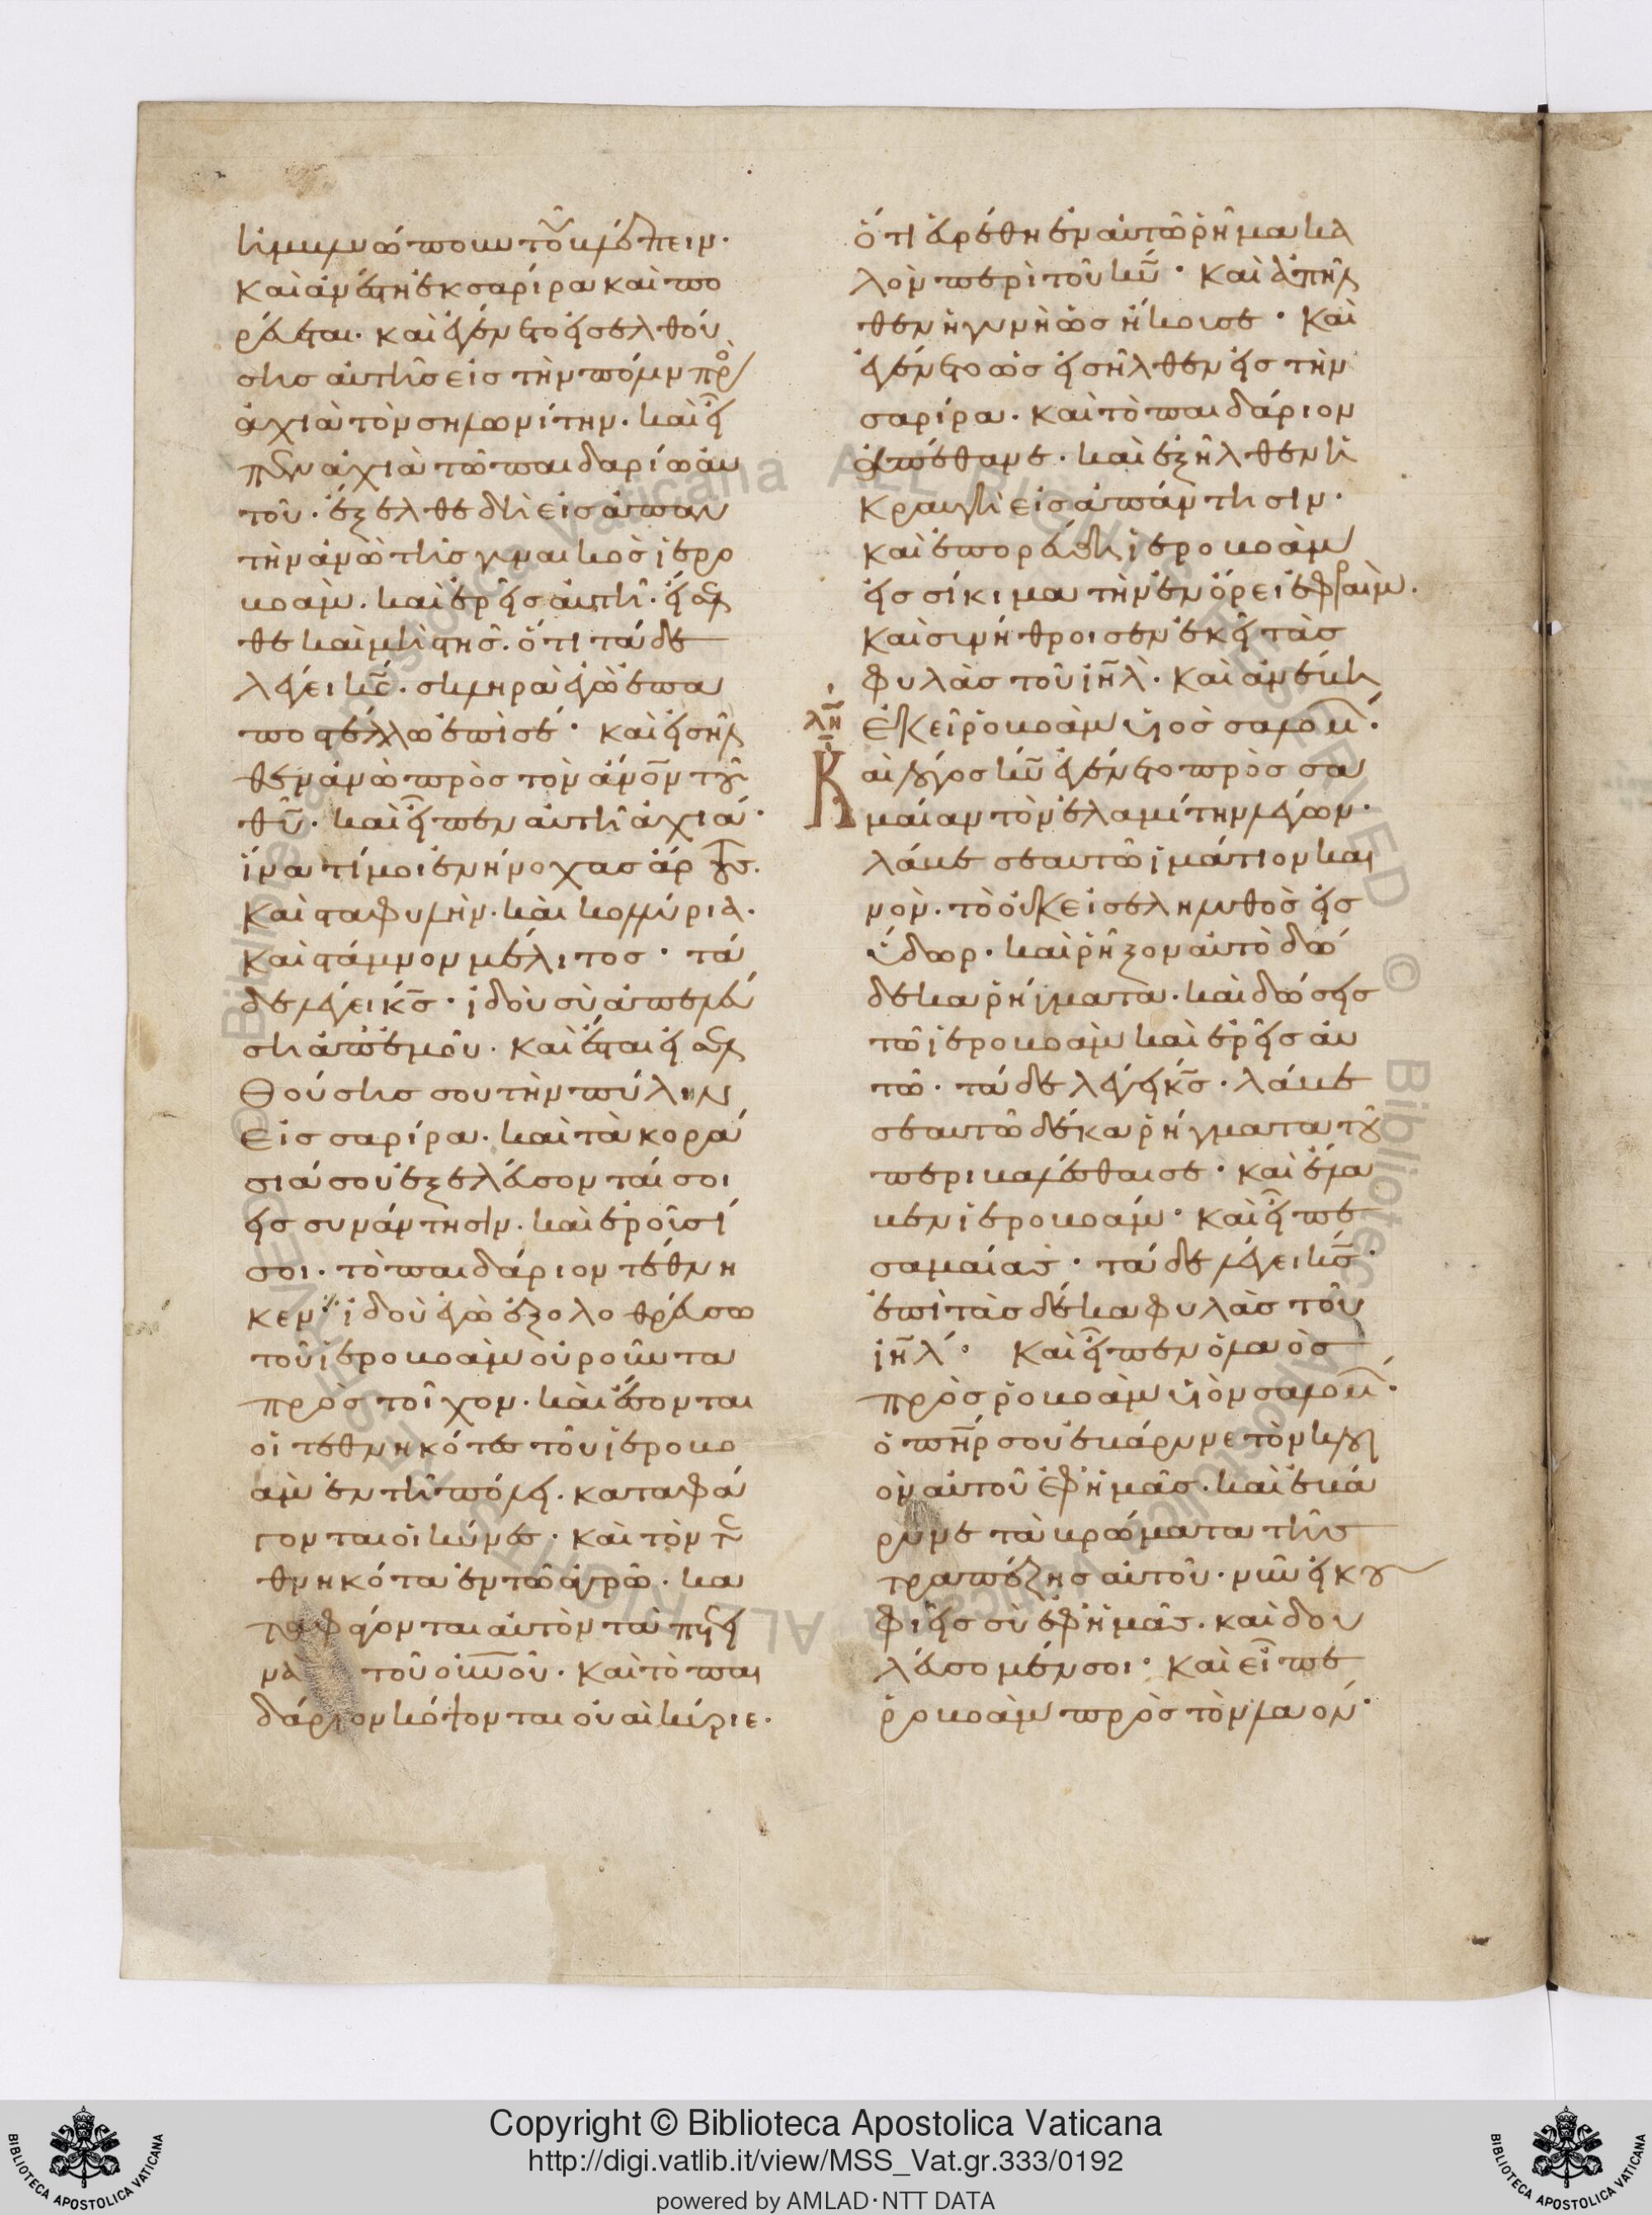 ἠμβλυώπουν τοῦ βλέπειν·
καὶ ἀνέστη ἐκ σαρίρα καὶ πο
ρεύεται· καὶ ἐγένετο εἰσελθού
σης αὐτῆς εἰς τὴν πόλιν πρὸς
ἀχιὰ τὸν σηλωνίτην· καὶ εἶ
πεν ἀχιὰ τῷ παιδαρίῳ αὐ
τοῦ· ἔξελθε δὴ εἰς ἀπαν
τὴν ἀνὼ τῆς γυναικὸς ἱερο
βοάμ· καὶ ἐρεῖς αὐτῇ· εἴσελ
θε καὶ μὴ στῇς· ὅτι τάδε
λέγει κ̅ς̅· σκληρὰ ἐγὼ ἐπα
ποστέλλω ἐπί σε· καὶ εἰσῆλ
θεν ἀνὼ πρὸς τὸν ἄν̅ο̅ν̅ τοῦ
θ̅υ̅· καὶ εἶπεν αὐτῇ ἀχιά·
ἵνα τί μοι ἐνήνοχας ἄρτους·
καὶ σταφυλὴν· καὶ κολλύρια·
καὶ στάμνον μέλιτος· τά
δε λέγει κ̅ς̅· ἰδοὺ σὺ ἀπελεύ
ση ἀπ' ἐμοῦ· καὶ ἔσται εἰσελ
θούσης σου τὴν πύλην
εἰς σαρίρα· καὶ τὰ κορά
σιά σου ἐξελεύσονταί σοι
εἰς συνάντησιν· καὶ ἐροῦσί
σοι· τὸ παιδάριον τέθνη
κεν· ἰδοὺ ἐγὼ ἐξολοθρεύσω
τοῦ ἱεροβοὰμ οὐροῦντα
πρὸς τοῖχον· καὶ ἔσονται
οἱ τεθνηκότες τοῦ ἱεροβο
ὰμ ἐν τῇ πόλει· καταφά
γονται οἱ κύνες· καὶ τὸν τε
θνηκότα ἐν τῷ ἀγρῷ· κα
ταφάγονται αὐτὸν τὰ πετει
νὰ τοῦ οὐ̅ν̅οῦ· καὶ τὸ παι
δάριον κόψονται οὐαὶ κύριε·
ὅτι εὑρέθη ἐν αὐτῷ ῥῆμα κα
λὸν περὶ τοῦ κ̅υ̅· καὶ ἀπῆλ
θεν ἡ γυνὴ ὡς ἤκουσε· καὶ
ἐγένετο ὡς εἰσῆλθεν εἰς τὴν
σαρίρα· καὶ τὸ παιδάριον
ἀπέθανε· καὶ ἐξῆλθεν ἡ
κραυγὴ εἰς ἀπάντησιν·
καὶ ἐπορεύθη ἱεροβοὰμ
εἰς σίκιμα τὴν ἐν ὄρει ἐφραΐμ·
καὶ συνήθροισεν ἐκεῖ τὰς
φυλὰς τοῦ ἰ̅η̅λ̅· καὶ ἀνέβη
ἐκεῖ ῥοβοὰμ υἱὸς σολομῶν·
λη
Καὶ λόγος κ̅υ̅ ἐγένετο πρὸς σα
μαίαν τὸν ἐλαμίτην λέγων·
λάβε σεαυτῷ ἱμάτιον και
νὸν· τὸ οὐκ εἰσεληλυθὸς εἰς
ὕδωρ· καὶ ῥῆξον αὐτὸ δώ
δεκα ῥήγματα· καὶ δώσεις
τῷ ἱεροβοὰμ καὶ ἐρεῖς αὐ
τῷ· τάδε λέγει κ̅ς̅· λάβε
σεαυτῷ δέκα ῥήγματα τοῦ
περιβαλέσθαι σε· καὶ ἔλα
βεν ἱεροβοάμ· καὶ εἶπε
σαμαίας· τάδε λέγει κ̅ς̅·
ἐπὶ τὰς δέκα φυλὰς τοῦ
ἰ̅η̅λ̅· καὶ εἶπεν ὁ λαὸς
πρὸς ῥοβοὰμ υἱὸν σολομῶν·
ὁ π̅η̅ρ̅ σου ἐβάρυνε τὸν κλοι
ὸν αὐτοῦ ἐφ' ἡμᾶς· καὶ ἐβά
ρυνε τὰ βρώματα τῆς
τραπέζης αὐτοῦ· νῦν εἰ κου
φιεῖς σὺ ἐφ' ἡμᾶς· καὶ δου
λεύσομέν σοι· καὶ εἶπε
ῥοβοὰμ πρὸς τὸν λαόν·
Copyright © Biblioteca Apostolica Vaticana
http://digi.vatlib.it/view/MSS_Vat.gr.333/0192
powered by AMLAD·NTT DATA